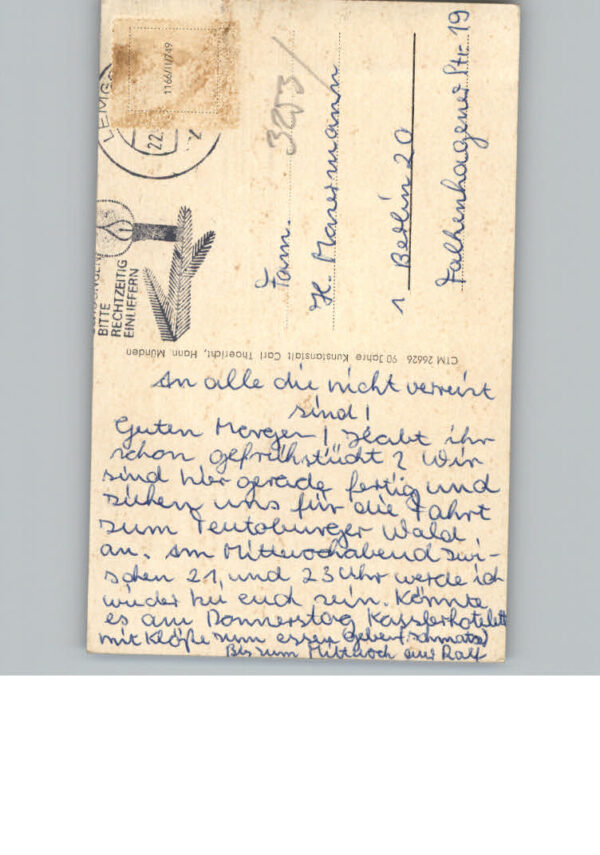 LEMGO
22.
1166/11/749
3253/
BITTE
RECHTZEITIG
EINLIEFERN
Fam.
H. Masermann
1 Berlin 20
Falkenhagener Str. 19
CTM 26626 90 Jahre Kunstanstalt Carl Thoericht, Hann. Münden
An alle die nicht verreist
sind!
Guten Morgen! Habt ihr
schon gefrühstückt? Wir
sind hier gerade fertig und
ziehen uns für die Fahrt
zum Teutoburger Wald
an. Am Mittwochabend zwi-
schen 21, und 23 Uhr werde ich
wieder bei euch sein. Könnte
es am Donnerstag Kasslerkotelett
mit Klöße zum essen geben (schmatz)
Bis zum Mittwoch euer Ralf